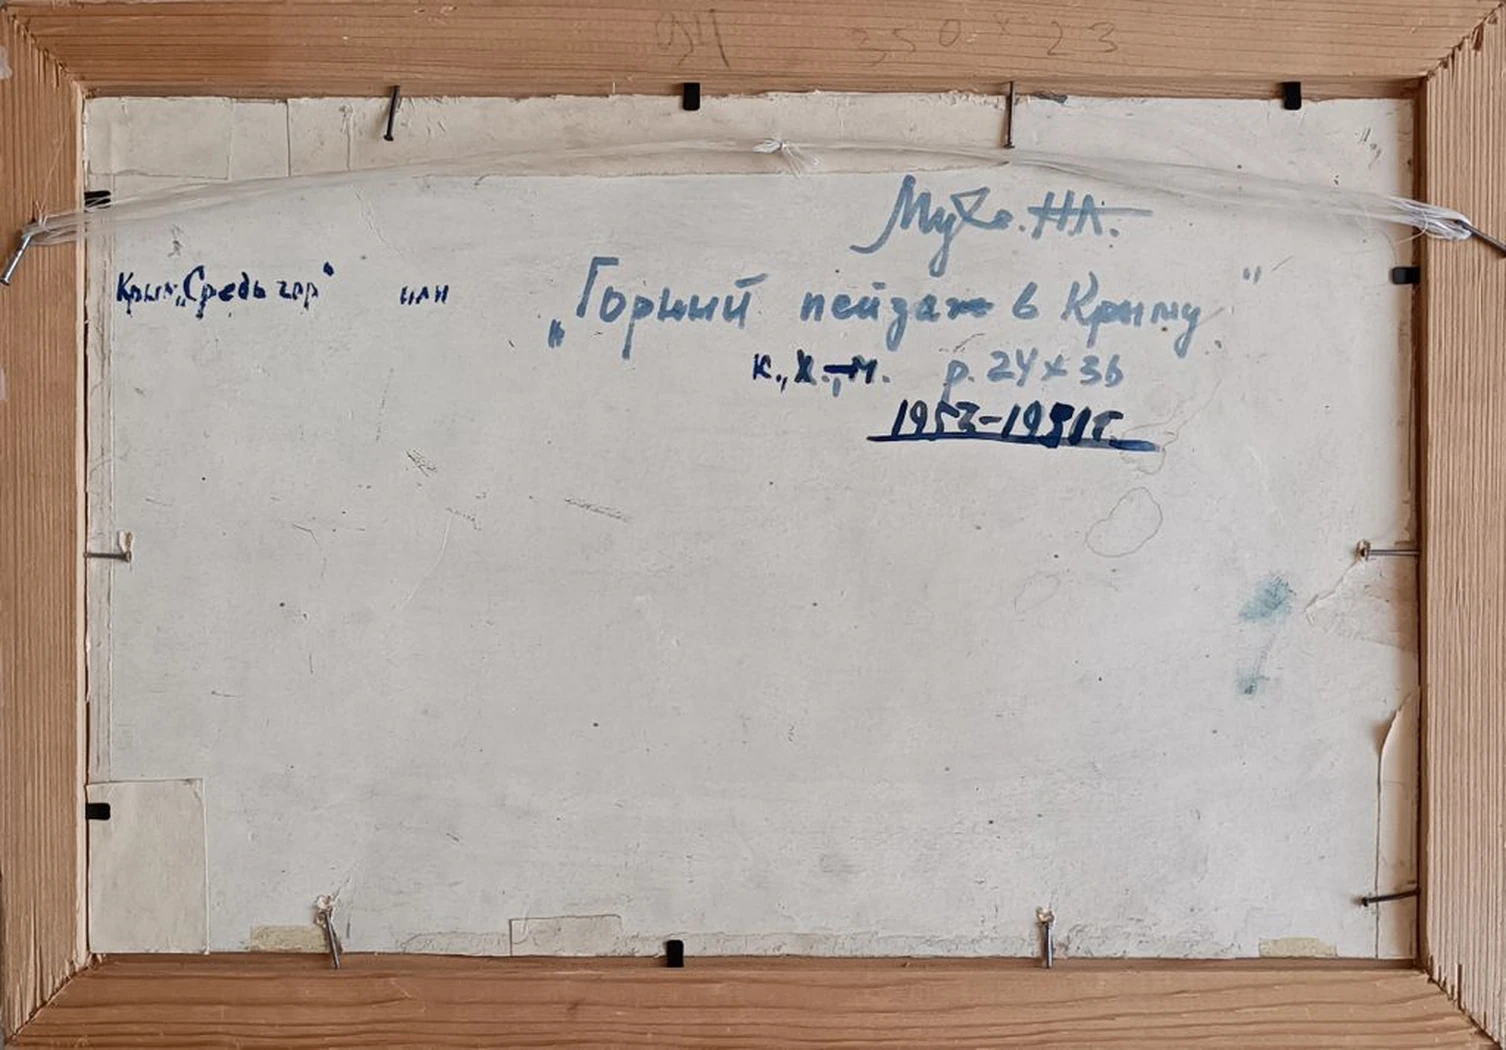 350 x 23
Муха. Н.А.
Крым „Средь гор" или „Горный пейзаж в Крыму"
к., х.,-м. р. 24 x 36
1952-1951г.